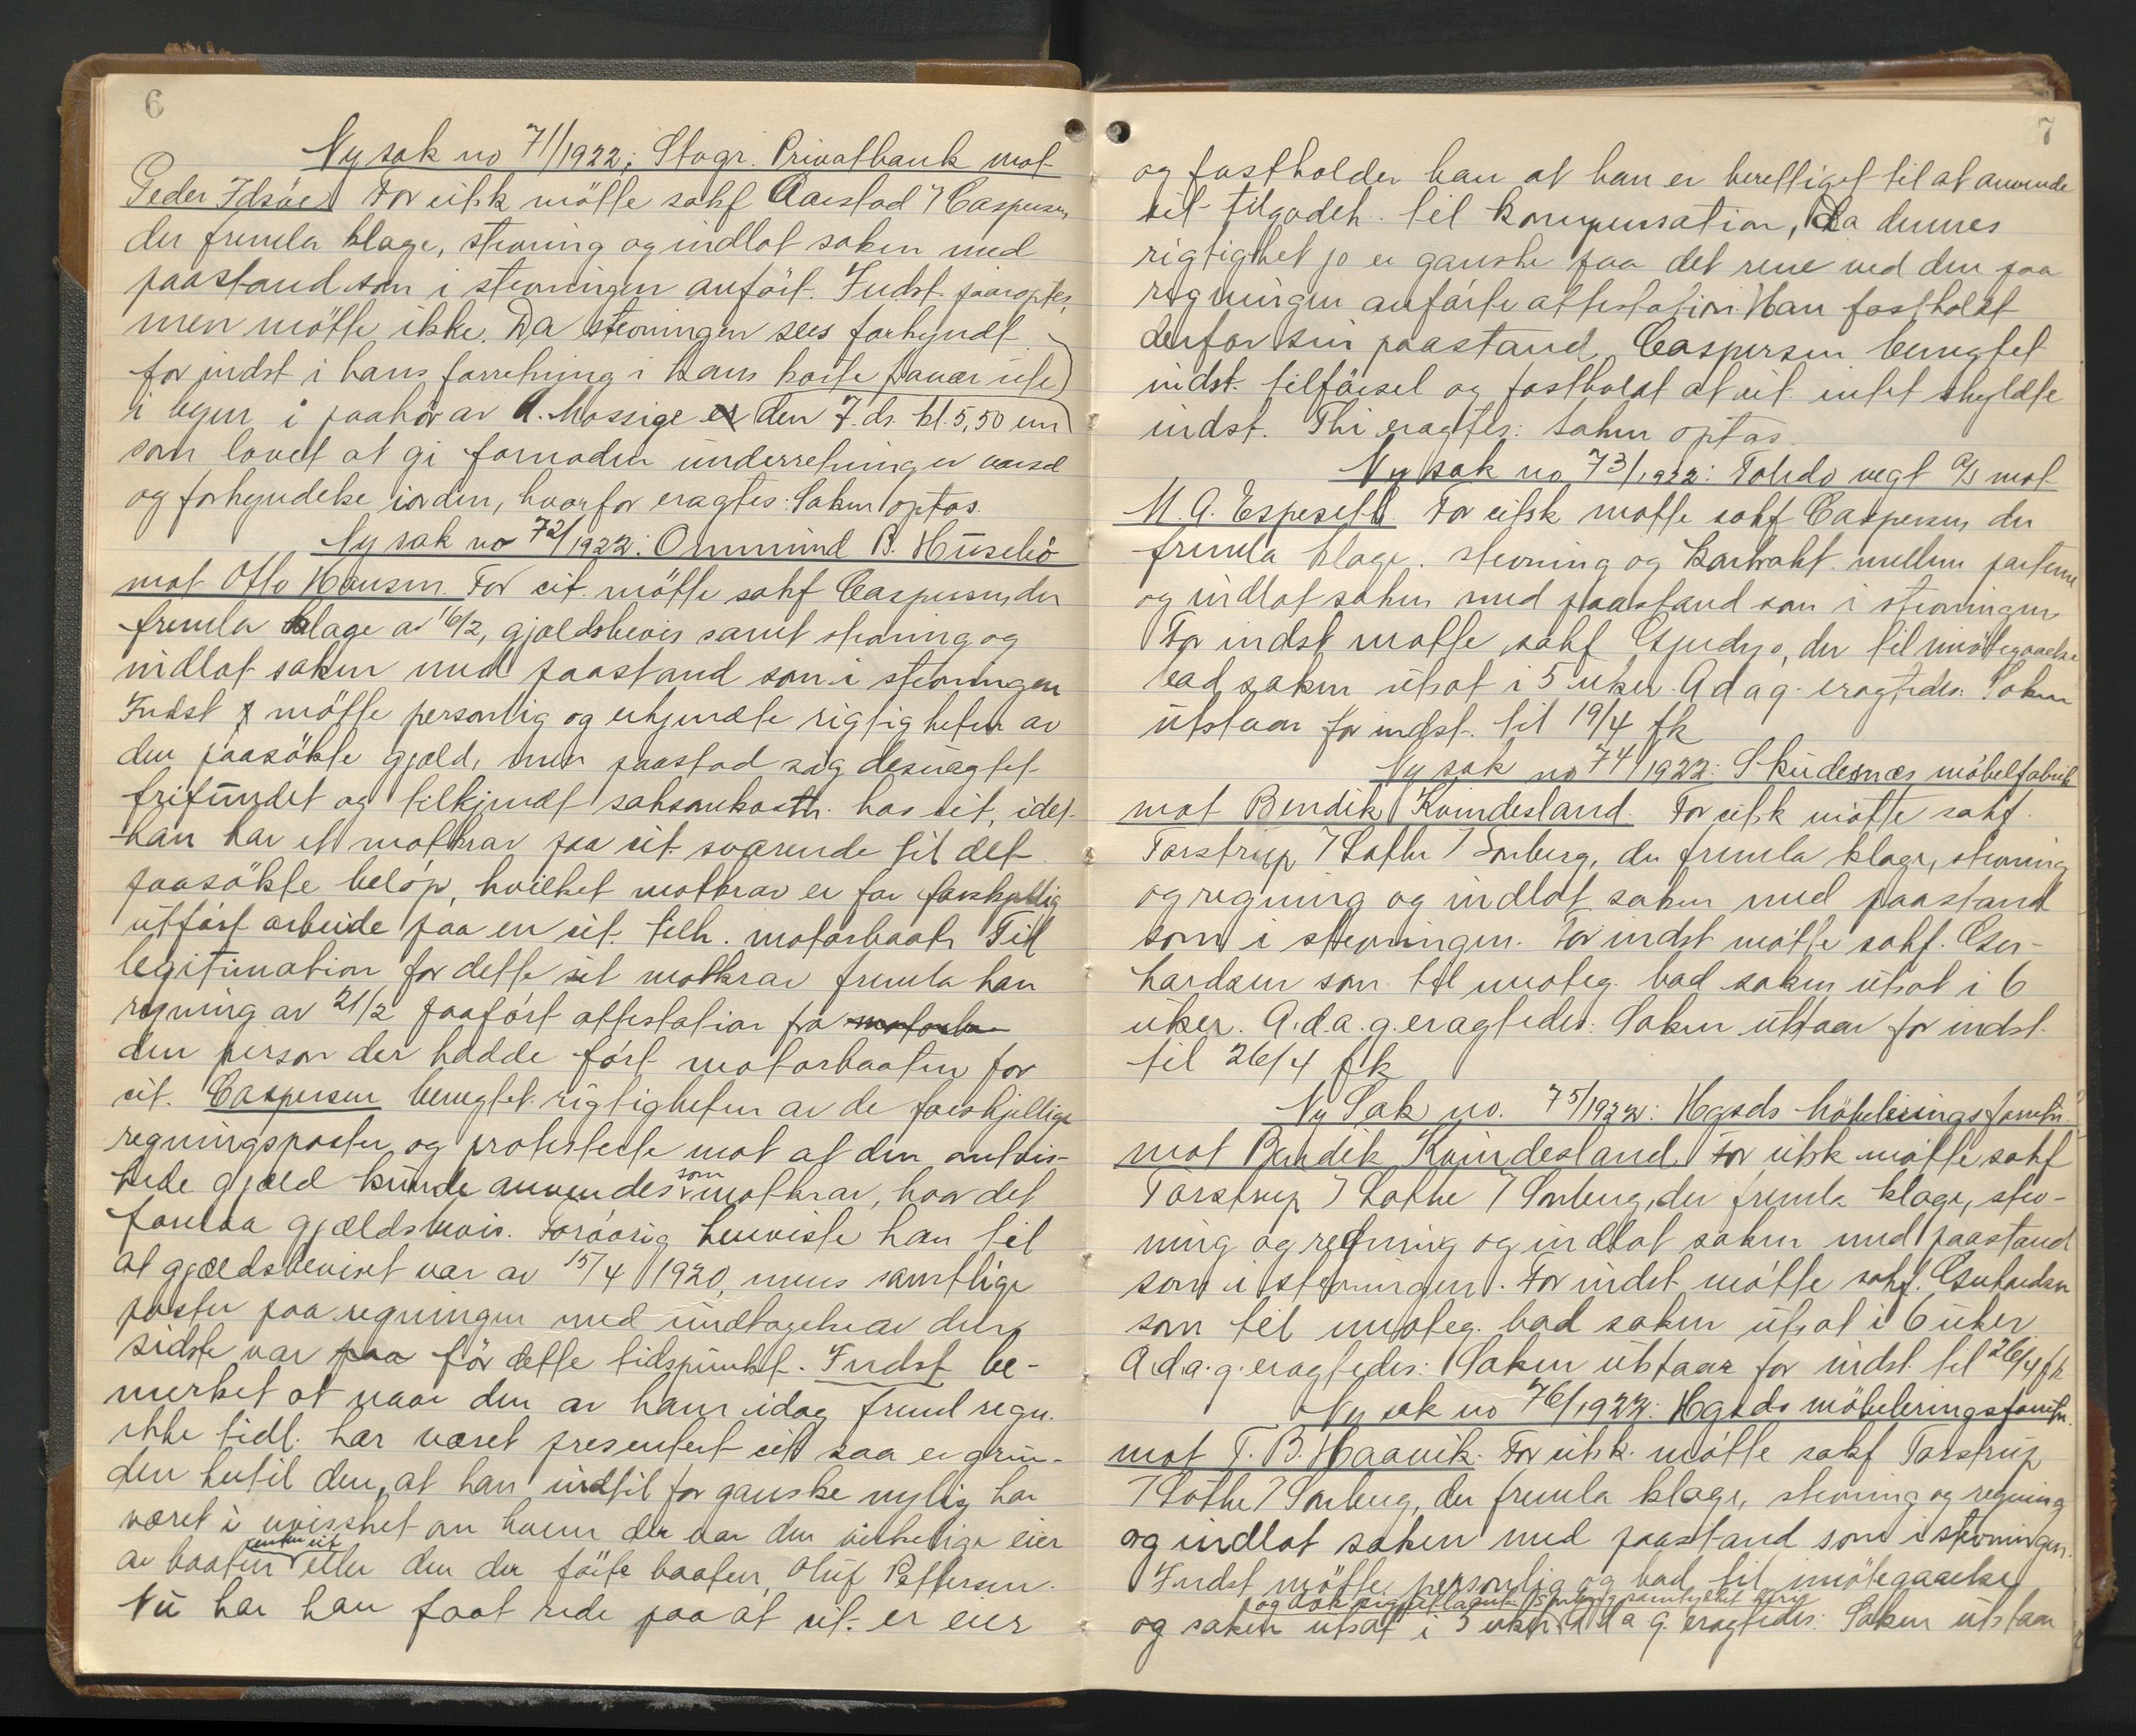 6
Ny sak no 71/1922: Stagr. Privatbank mot
Peder Idsöe. For citsk mötte sakf Aarstad / Caspersen
der fremla klage, stevning og indlot saken med
paastand som i stevningen anfört. Indst. paaroptes,
men mötte ikke. Da stevningen sees forkyndt
for indst i hans forretning i hans
i byen i paahör av A. Mossige den 7. ds. kl. 5,50 em
som lovet at gi fornöden underretning er varsel
og forkyndelse iorden, hvorfor eragtes: Saken optas.
Ny sak no 72/1922: Ommund B. Husebö
mot Otto Hansen. For cit. mötte sakf Caspersen, der
fremla klage av 16/2, gjældsbevis samt stevning og
indlot saken med paastand som i stevningen
Indst mötte personlig og erkjendte rigtigheten av
den paasökte gjæld, men paastod sig desuagtet
frifundet og tilkjendt saksomkostn. hos cit, idet
han har et motkrav paa cit. svarende til det
paasökte belöp, hvilket motkrav er for forskjellig
utfört arbeide paa en cit. tilh. motorbaat. Til
legitimation for dette sit motkrav fremla han
regning av 21/2 paafört attestation fra
den person der hadde fört motorbaaten for
cit. Caspersen benegtet rigtigheten av de forskjellige
regningsposter og protesterte mot at den omtvis-
tede gjæld kunde anvendes som motkrav, hvor det
forelaa gjældsbevis. Forövrig henviste han til
at gjældsbeviset var av 15/4 1920, mens samtlige
poster paa regningen med undtagelse av den
sidste var paa för dette tidspunkt. Indst be-
merket at naar den av ham idag freml regn.
ikke tidl. har været presentert cit saa er grun-
den hertil den, at han indtil for ganske nylig har
været i uvisshet om hvem der var den virkelige eier
av baaten enten cit eller den der förte baaten, Oluf Pettersen.
Nu har han faat rede paa at cit. er eier
7
og fastholder han at han er berettiget til at anvende
sit tilgodeh. til kompensation, da dennes
rigtighet jo er ganske paa det rene ved den paa
regningen anförte attestation. Han fastholdt
derfor sin paastand. Caspersen benegtet
indst. tilförsel og fastholdt at cit. intet skyldte
indst. Thi eragtes: Saken optas.
Ny sak no 73/1922: Toledo vegt A/S mot
M. A. Espeseth. For citsk mötte sakf Caspersen, der
fremla klage, stevning og kontrakt mellem parterne
og indlot saken med paastand som i stevningen
For indst mötte sakf, der til imötegaaelse
bad saken utsat i 5 uker. A d a g. eragtedes: Saken
utstaar for indst. til 19/4 fk
Ny sak no 74/1922: Skudesnæs möbelfabrik
mot Bendik Kvindesland. For citsk mötte sakf.
Torstrup / Lothe / Sonberg, der fremla klage, stevning
og regning og indlot saken med paastand
som i stevningen. For indst mötte sakf. Ger-
hardsen som til imöteg. bad saken utsat i 6
uker. A. d. a. g. eragtedes: Saken utstaar for indst.
til 26/4 fk
Ny Sak no. 75/1922: Hgsds Möbeleringsforretn.
mot Bendik Kvindesland. For citsk mötte sakf
Torstrup / Lothe / Sonberg, der fremla klage, stev-
ning og regning og indlot saken med paastand
som i stevningen. For indst mötte sakf. Gerhardsen
som til imöteg. bad saken utsat i 6 uker
A. d. a. g. eragtedes: Saken utstaar for indst. til 26/4 fk
Ny sak no 76/1922: Hgsds möbeleringsforretn.
mot T. B. Haavik. For citsk. mötte sakf Torstrup
/ Lothe / Sonberg, der fremla klage, stevning og regning
og indlot saken med paastand som i stevningen.
Indst mötte personlig og bad til imötegaaelse
og saken utsat i 3 uker. A d a g. eragtedes: Saken utstaar